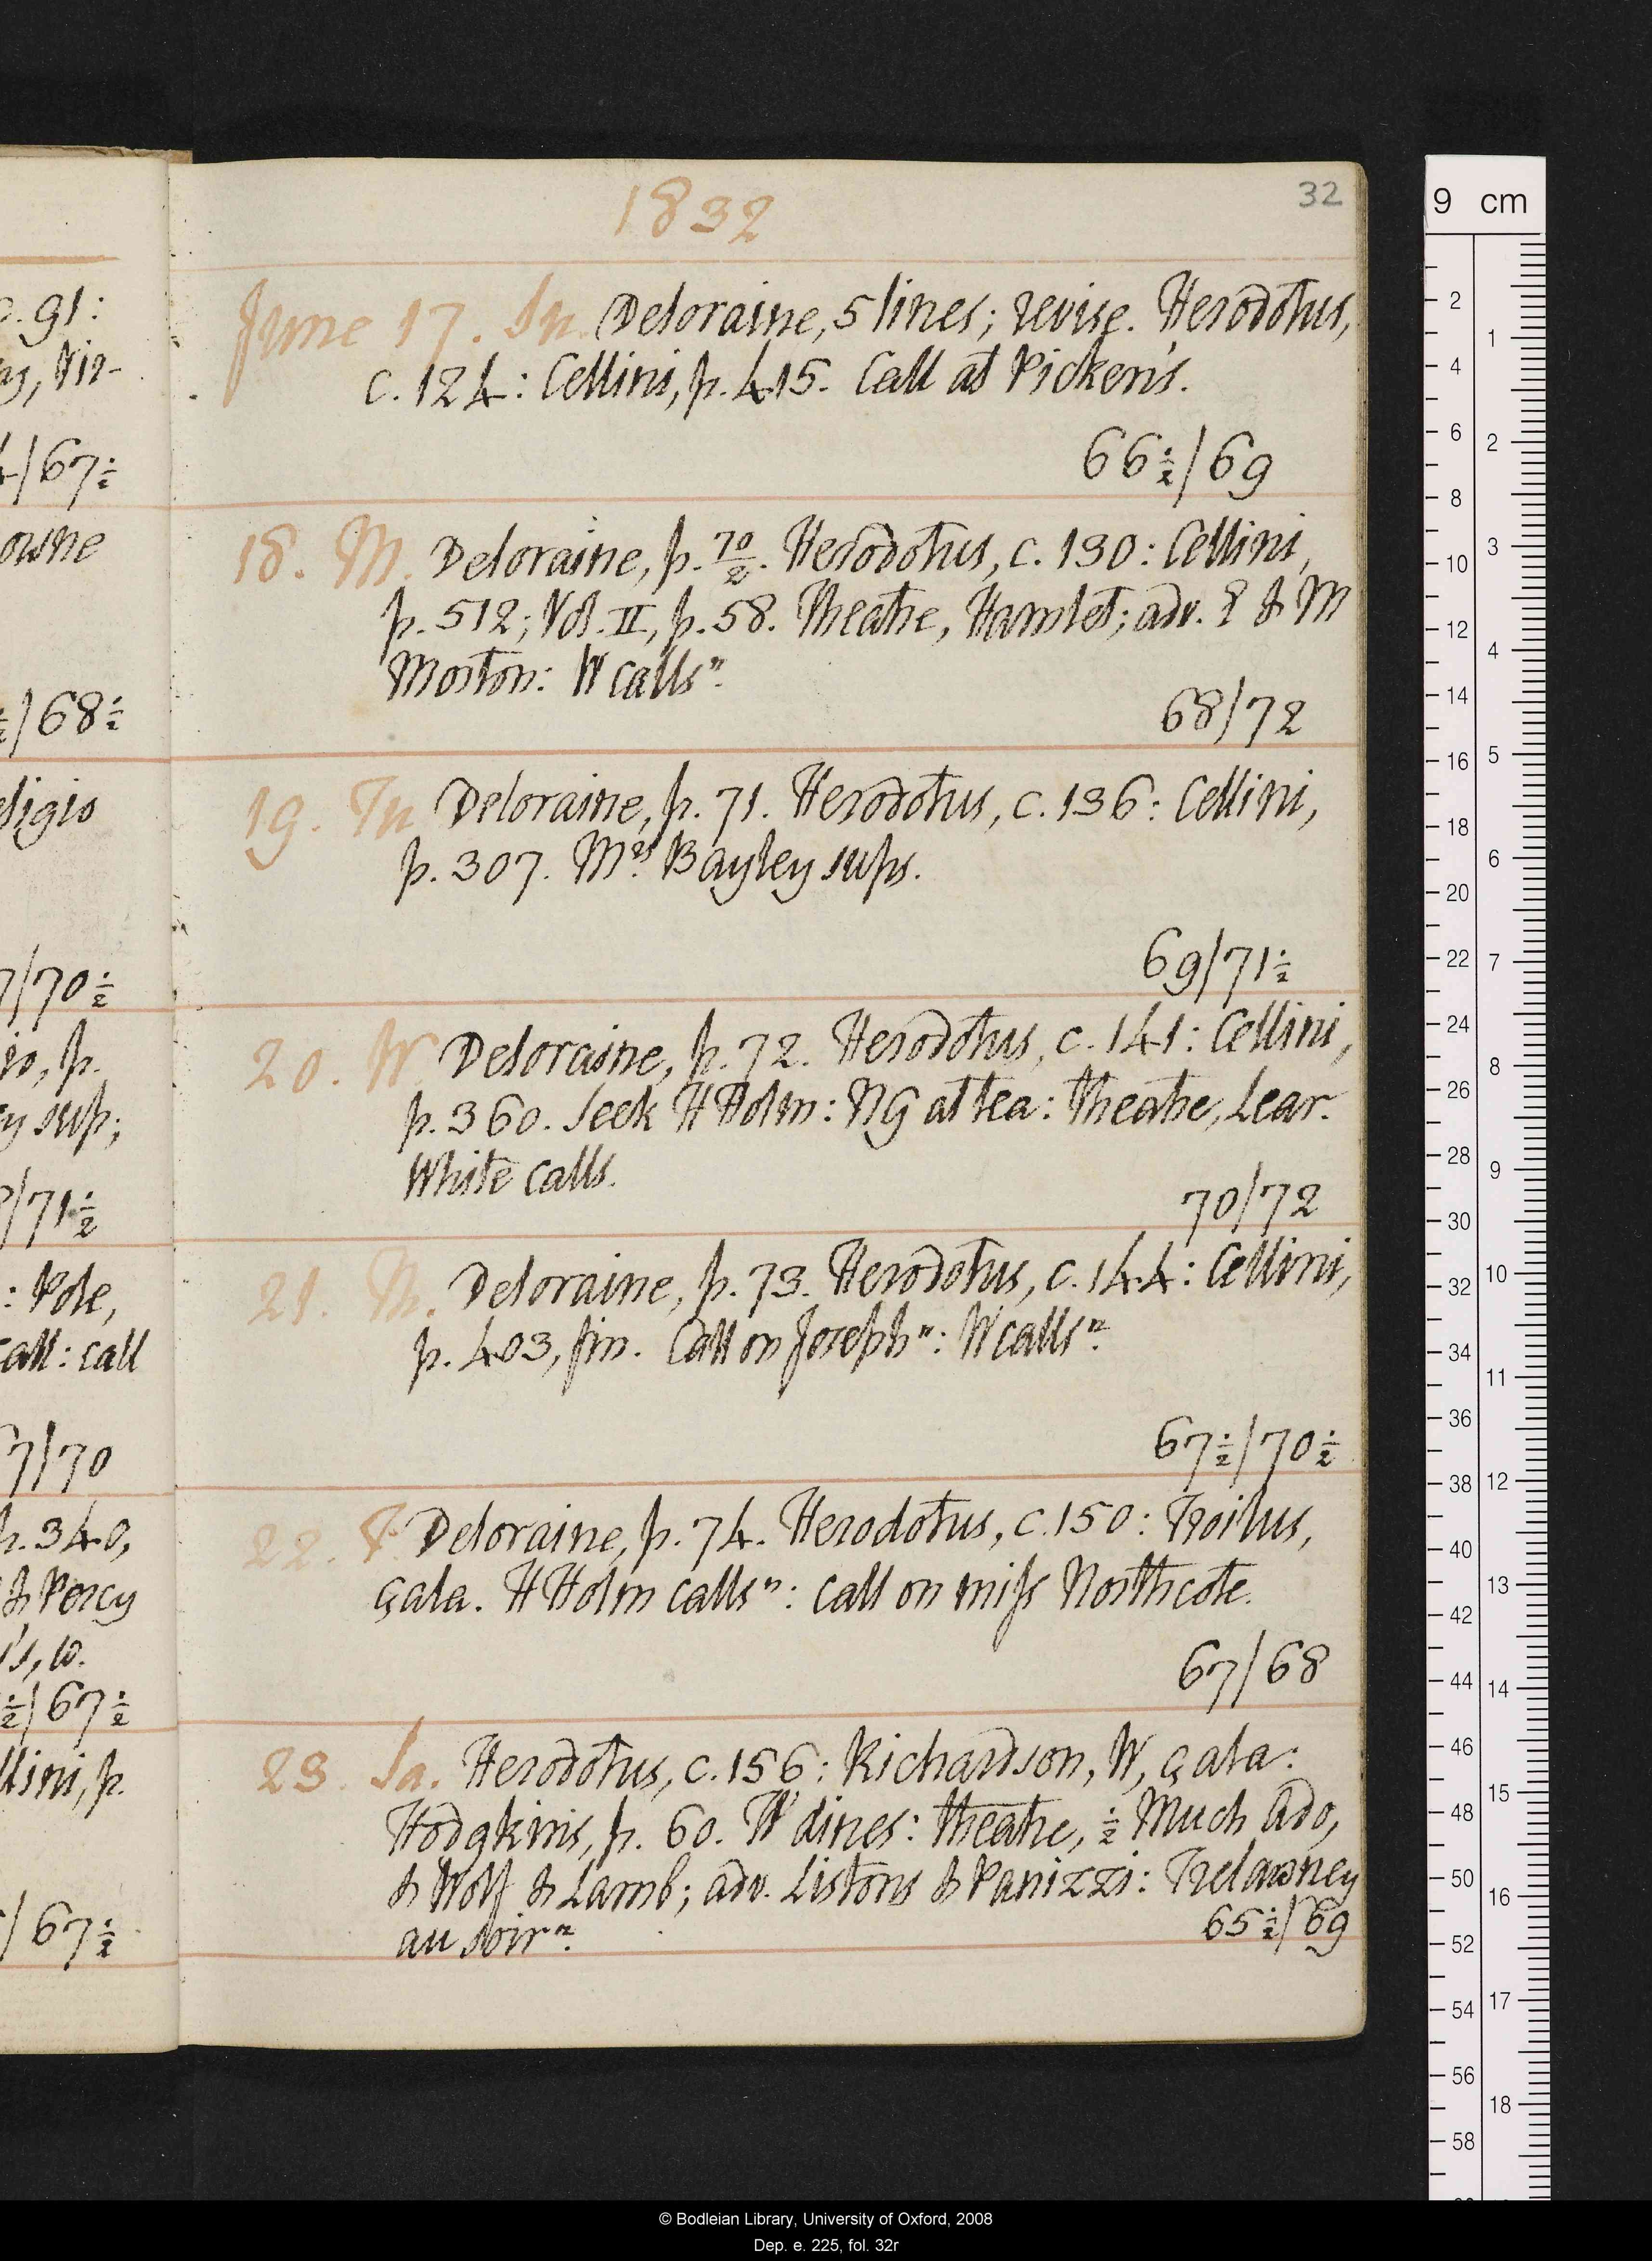 1832
32
June 17. Su. Deloraine, 5 lines; revise. Herodotus,
c. 124: Cellini, p. 415. Call at Picken's.
66½/69
18. M. Deloraine, p. 70/2. Herodotus, c. 130: Cellini,
p. 512; Vol. II, p. 58. Theatre, Hamlet; adv. P & M
Morton: W calls n.
68/72
19. Tu Deloraine, p. 71. Herodotus, c. 136: Cellini,
p. 307. Mrs. Bayley sups.
69/71½
20. W. Deloraine, p. 72. Herodotus, c. 141: Cellini,
p. 360. Seek H Holm: NG at tea: Theatre, Lear.
White calls.
70/72
21. Th. Deloraine, p. 73. Herodotus, c. 144: Cellini,
p. 403, fin. Call on Joseph n: W calls n.
67½/70½
22. F. Deloraine, p. 74. Herodotus, c. 150: Troilus,
çala. H Holm calls n: call on miss Northcote.
67/68
23. Sa. Herodotus, c. 156: Richardson, W, çala:
Hodgkins, p. 60. W dines: theatre, ½ Much Ado,
& Wolf & Lamb; adv. Listons & Panizzi: Trelawney
au soir n.
65½/69
p. 91:
Vir-
/67½
owne
/68½
eligio
7/70½
io, p.
y sup;
/71½
: Pole,
call: call
67/70
p. 340,
& Percy
's, 10.
½/67½
llini, p.
/67½
9 cm
2
4
6
8
10
12
14
16
18
20
22
24
26
28
30
32
34
36
38
40
42
44
46
48
50
52
54
56
58
1
2
3
4
5
6
7
8
9
10
11
12
13
14
15
16
17
18
© Bodleian Library, University of Oxford, 2008
Dep. e. 225, fol. 32r